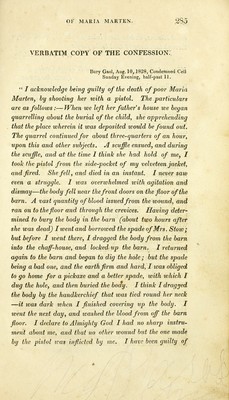 OF MARIA MARTEN. 285
VERBATIM COPY OF THE CONFESSION.
Bury Gaol, Aug. 10, 1828, Condemned Cell
Sunday Evening, half-past 11.
" I acknowledge being guilty of the death of poor Maria
Marten, by shooting her with a pistol. The particulars
are as follows :—When we left her father's house we began
quarrelling about the burial of the child, she apprehending
that the place wherein it was deposited would be found out.
The quarrel continued for about three-quarters of an hour,
upon this and other subjects. A scuffle ensued, and during
the scuffle, and at the time I think she had hold of me, I
took the pistol from the side-pocket of my velveteen jacket,
and fired. She fell, and died in an instant. I never saw
even a struggle. I was overwhelmed with agitation and
dismay—the body fell near the front doors on the floor of the
barn. A vast quantity of blood issued from the wound, and
ran on to the floor and through the crevices. Having deter-
mined to bury the body in the barn (about two hours after
she was dead) I went and borrowed the spade of Mrs. Stow;
but before I went there, I dragged the body from the barn
into the chaff-house, and locked up the barn. I returned
again to the barn and began to dig the hole; but the spade
being a bad one, and the earth firm and hard, I was obliged
to go home for a pickaxe and a better spade, with which I
dug the hole, and then buried the body. I think I dragged
the body by the handkerchief that was tied round her neck
—it was dark when I finished covering up the body. I
went the next day, and washed the blood from off the barn
floor. I declare to Almighty God I had no sharp instru-
ment about me, and that no other wound but the one made
by the pistol was inflicted by me. I have been guilty of